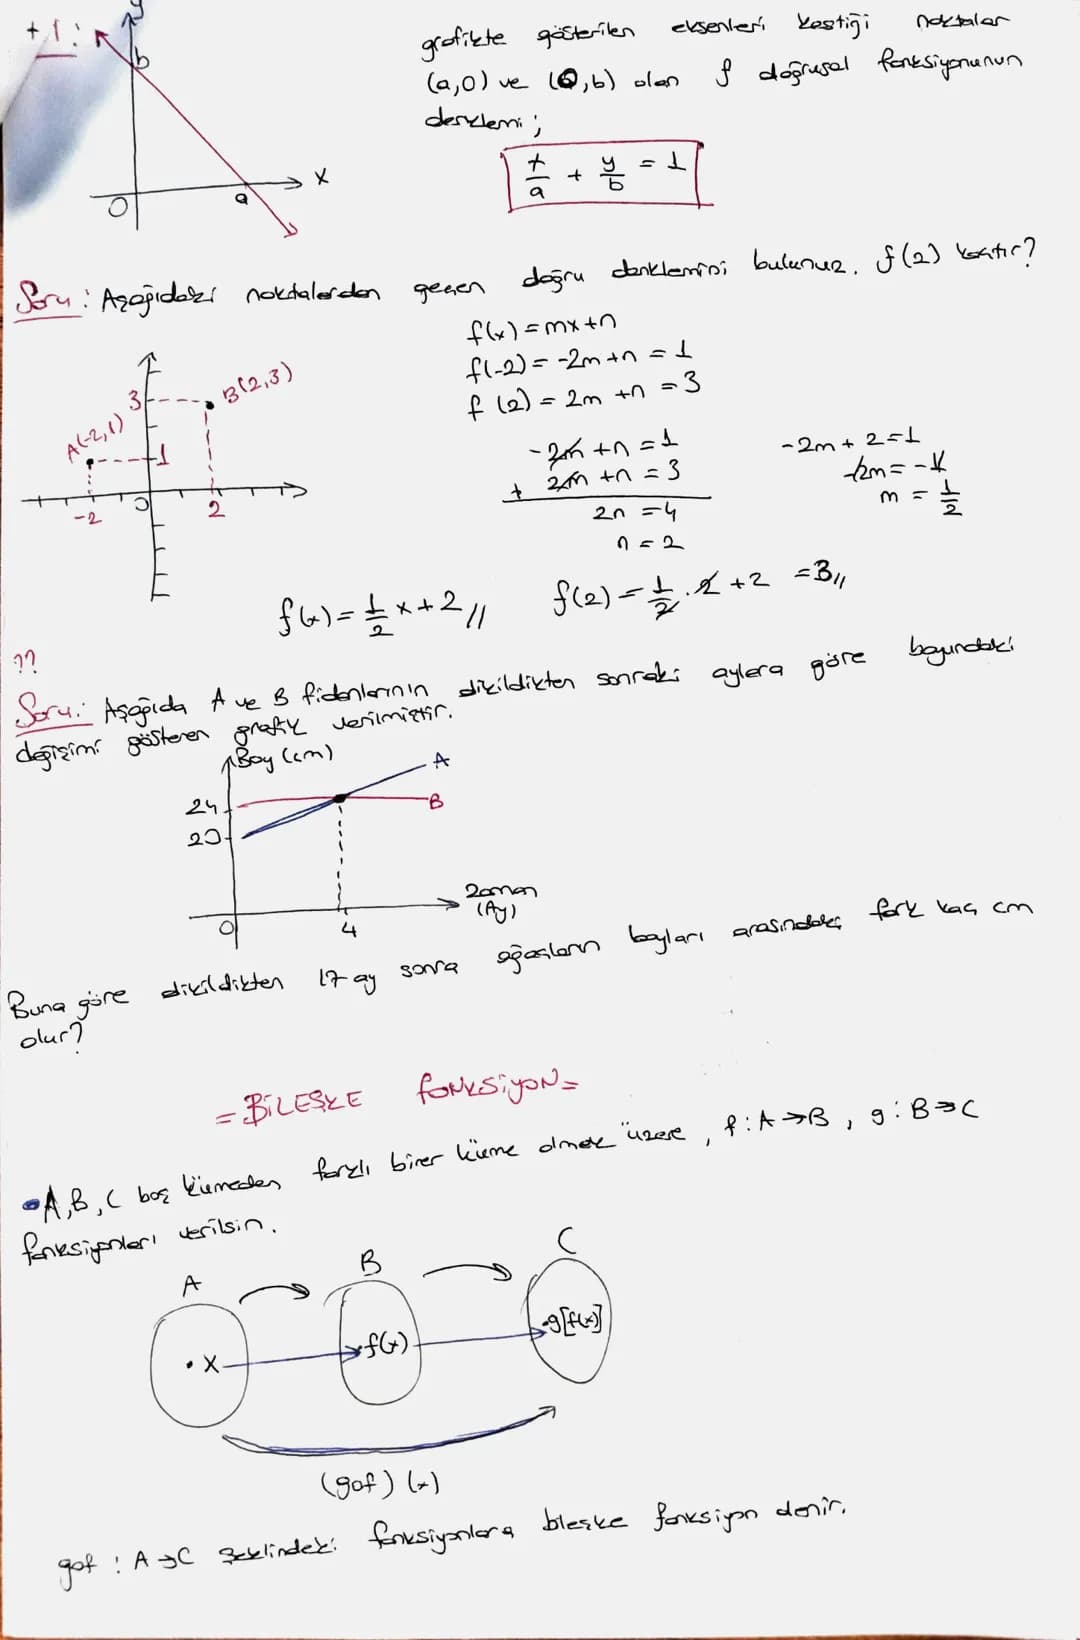 +1:
y
b
O
a
x
grafikte gösterilen eksenleri kestiği noktalar
(a,0) ve (0,b) olan f doğrusal fonksiyonunun
denklemi;
x/a + y/b = 1
Soru: Aşağıdaki noktalardan geçen doğru denklemini bulunuz. f(2) kaçtır?
3
B(2,3)
A(-2,1)
1
-2
O
2
f(x) = mx+n
f(-2) = -2m+n = 1
f(2) = 2m+n = 3
-2m+n = 1
+ 2m+n = 3
2n = 4
n = 2
-2m+2=1
-2m = -1
m = 1/2
f(x) = 1/2 x+2 //
f(2) = 1/2 . 2 +2 = 3 //
??
Soru: Aşağıda A ve B fidanlarının dikildikten sonraki aylara göre boyundaki
değişimi gösteren grafik verilmiştir.
Boy (cm)
A
24
B
20
Zaman
(Ay)
O
4
Buna göre dikildikten 17 ay sonra ağaçların boyları arasındaki fark kaç cm
olur?
= BİLEŞKE FONKSİYON =
• A, B, C boş kümeden farklı birer küme olmak üzere, f: A→B, g: B→C
fonksiyonları verilsin.
A
B
C
• x
f(x)
g[f(x)]
(gof)(x)
gof : A→C şeklindeki fonksiyonlara bleşke fonksiyon denir.